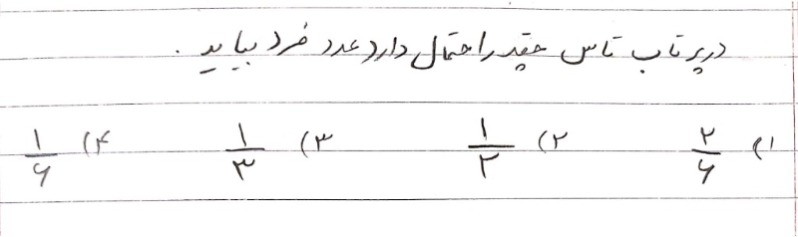 در پرتاب تاس چقدر احتمال دارد عدد فرد بیاید .
۱) ۲/۶ ۲) ۱/۲ ۳) ۱/۳ ۴) ۱/۶